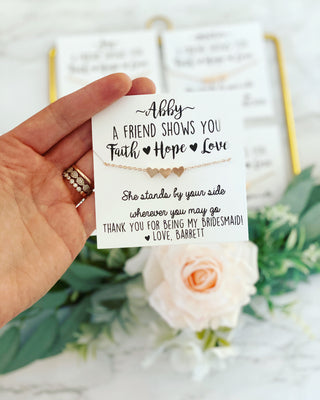 Abby
A FRIEND SHOWS YOU
Faith ♥ Hope ♥ Love
She stands by your side
wherever you may go
THANK YOU FOR BEING MY BRIDESMAID!
♥ LOVE, BARRETT
A FRIEND SHOWS YOU